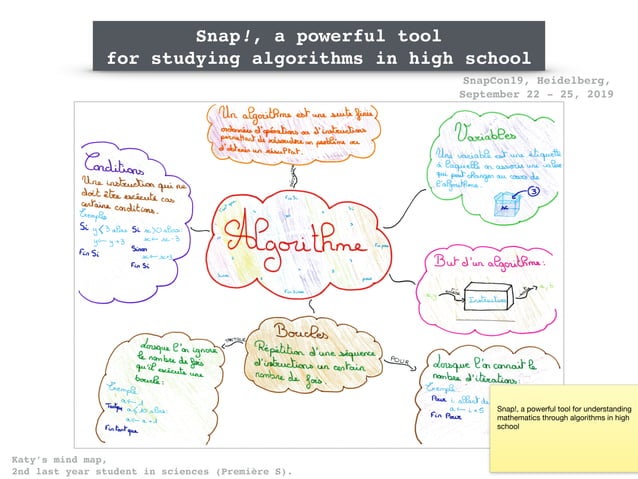 Snap!, a powerful tool
for studying algorithms in high school
SnapCon19, Heidelberg,
September 22 - 25, 2019
Un algorithme est une suite finie
ordonnée d'opérations ou d'instructions
permettant de résoudre un problème ou
d'obtenir un résultat.
Conditions
Une instruction qui ne
doit être exécuté cas
certaine conditions.
Exemple
Si y<3 alors
y← y+3
Fin Si
Si x>0 alors:
x← x-3
Sinon
x← x+3
Fin Si
Variables
Une variable est une étiquette
à laquelle on associe une
qui peut changer au cours de
l'algorithme.
3
Algorithme
But d'un algorithme:
Instructions
Boucles
Répétition d'une séquence
d'instructions un certain
nombre de fois.
POUR
Lorsque l'on ignore
le nombre de fois
qu'il exécute une
boucle:
Exemple
a← 1
Tantque a≤10 alors:
a← a+1
Fin tant que
Lorsque l'on connait le
nombre d'itérations:
Exemple:
Pour i allant de
a← i+5
Fin Pour
Snap!, a powerful tool for understanding
mathematics through algorithms in high
school
Katy's mind map,
2nd last year student in sciences (Première S).